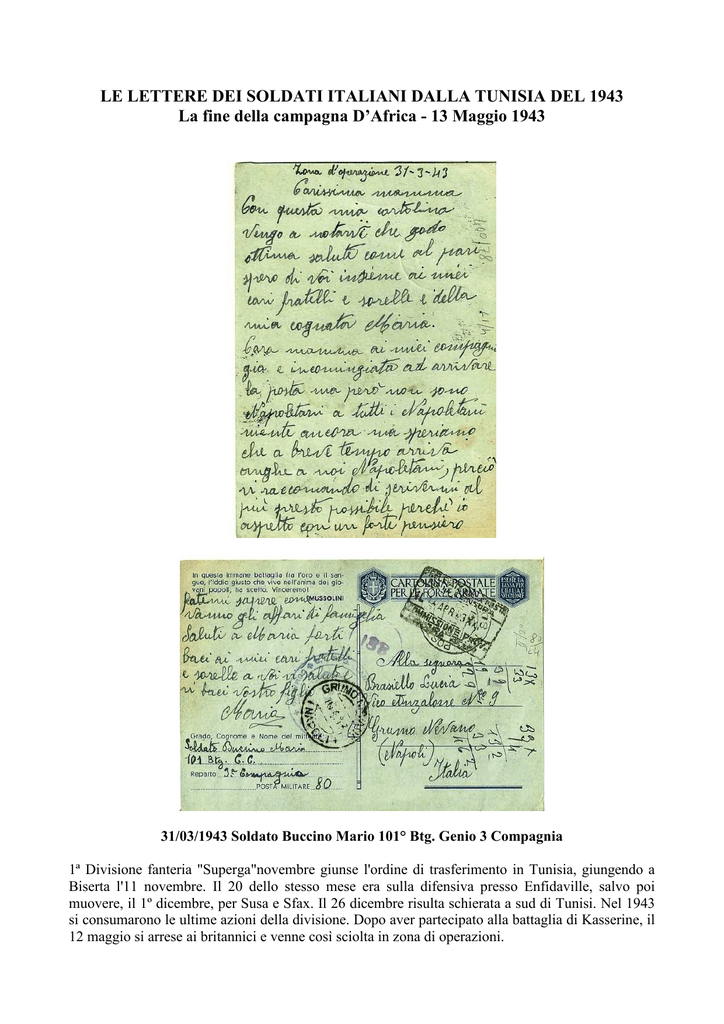 LE LETTERE DEI SOLDATI ITALIANI DALLA TUNISIA DEL 1943
La fine della campagna D'Africa - 13 Maggio 1943
Zona d'operazione 31-3-43
Carissima mamma
Con questa mia cartolina
vengo a notarvi che godo
ottima salute come al pari
spero di voi insieme ai miei
cari fratelli e sorelle e della
mia cognata Maria.
Cara mamma ai miei compagni
gia e incomingiata ad arrivare
la posta ma però non sono
Napoletani a tutti i Napoletani
niente ancora ma speriamo
che a breve tempo arriva
anghe a noi Napoletani, perciò
vi raccomando di scrivermi al
più presto possibile perchè io
aspetto con un forte pensiero
In questa immane battaglia fra l'oro e il san-
gue, l'Iddio giusto che vive nell'anima dei gio-
vani popoli, ha scelto. Vinceremo!
MUSSOLINI
fatemi sapere come
vanno gli affari di famiglia
Saluti a Maria forti
Baci ai miei cari fratelli
e sorelle a voi vi saluto e
vi baci vostro figlio
Mario
Grado, Cognome e Nome del
Soldato Buccino Mario
101 Btg. G. C.
Reparto 3ª Compagnia
POSTA MILITARE 80
CARTOLINA POSTALE
PER LE FORZE ARMATE
188
GRUMO
Alla signora
Brasiello Lucia
Vico Anzalone Nº 9
Grumo Nevano
(Napoli)
Italia
31/03/1943 Soldato Buccino Mario 101° Btg. Genio 3 Compagnia
1ª Divisione fanteria "Superga"novembre giunse l'ordine di trasferimento in Tunisia, giungendo a
Biserta l'11 novembre. Il 20 dello stesso mese era sulla difensiva presso Enfidaville, salvo poi
muovere, il 1º dicembre, per Susa e Sfax. Il 26 dicembre risulta schierata a sud di Tunisi. Nel 1943
si consumarono le ultime azioni della divisione. Dopo aver partecipato alla battaglia di Kasserine, il
12 maggio si arrese ai britannici e venne così sciolta in zona di operazioni.